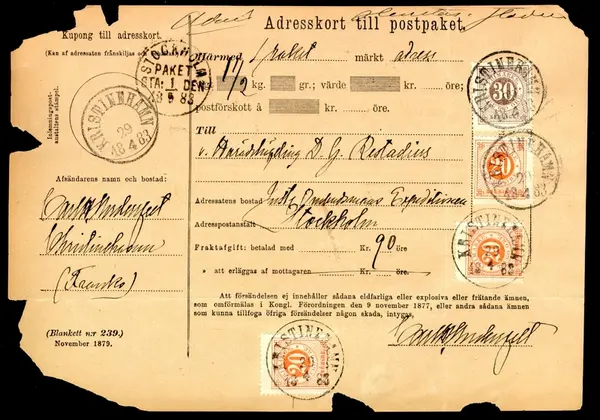 Kupong till adresskort.
(Kan af adressaten frånskiljas och
Inlemningspost-
anstaltens stämpel.
KRISTINEHAMN
29
4
18 83
Afsändarens namn och bostad:
Kristinehamn
(Franko)
(Blankett n:r 239.)
November 1879.
Adresskort till postpaket.
STOCKHOLM
PAKET
STA: 1. DEN
18 83
Härmed 1 paket märkt adress
11/2 kg. gr.; värde kr. öre;
postförskott å kr. öre;
Till
v. Häradshöfding D. G. Restadius
Adressatens bostad Justitie Ombudsmans Expeditionen
Adresspostanstalt Stockholm
Fraktafgift: betalad med Kr. 90 öre
» att erläggas af mottagaren Kr. öre
Att försändelsen ej innehåller sådana eldfarliga eller explosiva eller frätande ämnen,
som omförmälas i Kongl. Förordningen den 9 november 1877, eller andra sådana ämnen
som kunna tillfoga öfriga försändelser någon skada, intygas,
30
KRISTINEHAMN
20
KRISTINEHAMN
KRISTINEHAMN
29
4
18 83
KRISTINEHAMN
20
18 83